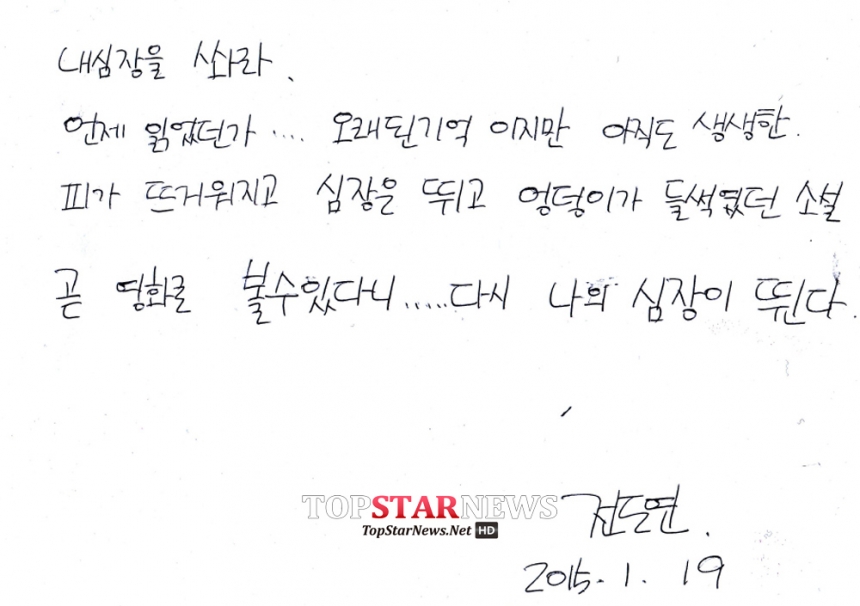 내심장을 쏴라.
언제 읽었던가.... 오래된기억 이지만 아직도 생생한.
피가 뜨거워지고 심장은 뛰고 엉덩이가 들썩였던 소설
곧 영화로 볼수있다니.....다시 나의 심장이 뛴다.
전도연.
2015. 1. 19
TOPSTARNEWS
TopStarNews.Net HD